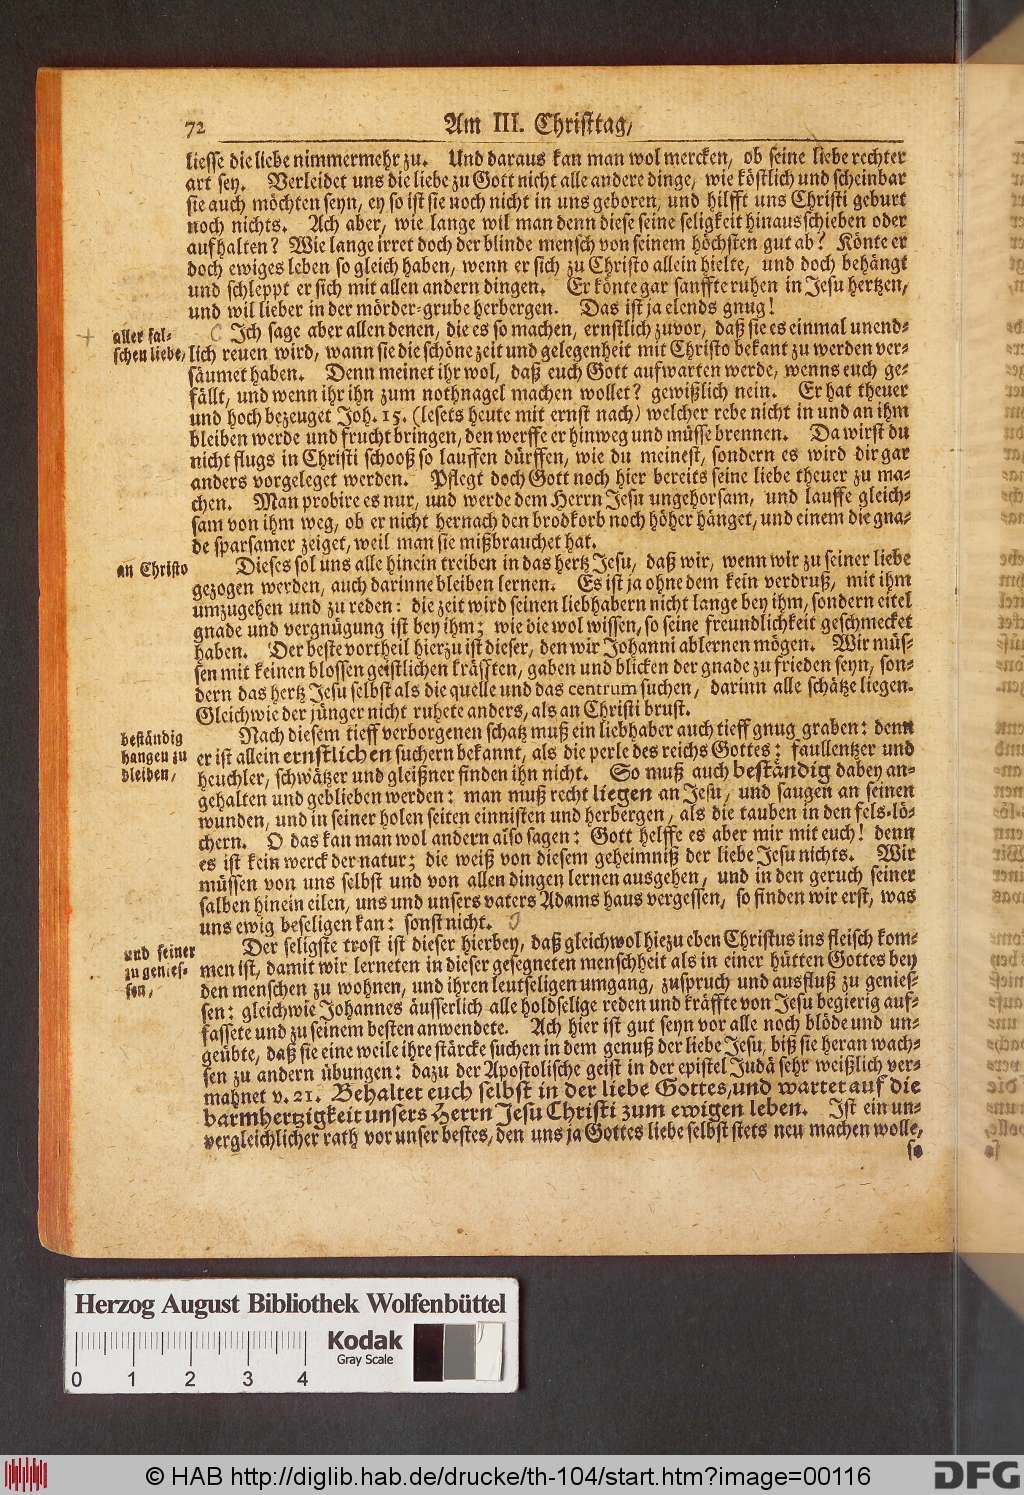 72
Am III. Christtag,
liesse die liebe nimmermehr zu. Und daraus kan man wol mercken, ob seine liebe rechter
art sey. Verleidet uns die liebe zu Gott nicht alle andere dinge, wie köstlich und scheinbar
sie auch möchten seyn, ey so ist sie noch nicht in uns geboren, und hilfft uns Christi geburt
noch nichts. Ach aber, wie lange wil man denn diese seine seligkeit hinaus schieben oder
aufhalten? Wie lange irret doch der blinde mensch von seinem höchsten gut ab? Könte er
doch ewiges leben so gleich haben, wenn er sich zu Christo allein hielte, und doch behängt
und schleppt er sich mit allen andern dingen. Er könte gar sanffte ruhen in Jesu hertzen,
und wil lieber in der mörder-grube herbergen. Das ist ja elends gnug!
aller fal-
schen liebe,
Ich sage aber allen denen, die es so machen, ernstlich zuvor, daß sie es einmal unend-
lich reuen wird, wann sie die schöne zeit und gelegenheit mit Christo bekant zu werden ver-
säumet haben. Denn meinet ihr wol, daß euch Gott aufwarten werde, wenns euch ge-
fällt, und wenn ihr ihn zum nothnagel machen wollet? gewißlich nein. Er hat theuer
und hoch bezeuget Joh. 15. (lesets heute mit ernst nach) welcher rebe nicht in und an ihm
bleiben werde und frucht bringen, den werffe er hinweg und müsse brennen. Da wirst du
nicht flugs in Christi schooß so lauffen dürffen, wie du meinest, sondern es wird dir gar
anders vorgeleget werden. Pflegt doch Gott noch hier bereits seine liebe theuer zu ma-
chen. Man probire es nur, und werde dem Herrn Jesu ungehorsam, und lauffe gleich-
sam von ihm weg, ob er nicht hernach den brodkorb noch höher hänget, und einem die gna-
de sparsamer zeiget, weil man sie mißbrauchet hat.
an Christo
Dieses sol uns alle hinein treiben in das hertz Jesu, daß wir, wenn wir zu seiner liebe
gezogen werden, auch darinne bleiben lernen. Es ist ja ohne dem kein verdruß, mit ihm
umzugehen und zu reden: die zeit wird seinen liebhabern nicht lange bey ihm, sondern eitel
gnade und vergnügung ist bey ihm; wie die wol wissen, so seine freundlichkeit geschmecket
haben. Der beste vortheil hierzu ist dieser, den wir Johanni ablernen mögen. Wir müs-
sen mit keinen blossen geistlichen kräfften, gaben und blicken der gnade zu frieden seyn, son-
dern das hertz Jesu selbst als die quelle und das centrum suchen, darinn alle schätze liegen.
Gleichwie der jünger nicht ruhete anders, als an Christi brust.
beständig
hangen zu
bleiben,
Nach diesem tieff verborgenen schatz muß ein liebhaber auch tieff gnug graben: denn
er ist allein ernstlichen suchern bekannt, als die perle des reichs Gottes: faullentzer und
heuchler, schwätzer und gleißner finden ihn nicht. So muß auch beständig dabey an-
gehalten und geblieben werden: man muß recht liegen an Jesu, und saugen an seinen
wunden, und in seiner holen seiten einnisten und herbergen, als die tauben in den fels-lö-
chern. O das kan man wol andern also sagen: Gott helffe es aber mir mit euch! denn
es ist kein werck der natur; die weiß von diesem geheimniß der liebe Jesu nichts. Wir
müssen von uns selbst und von allen dingen lernen ausgehen, und in den geruch seiner
salben hinein eilen, uns und unsers vaters Adams haus vergessen, so finden wir erst, was
uns ewig beseligen kan: sonst nicht.
und seiner
zu genies-
sen,
Der seligste trost ist dieser hierbey, daß gleichwol hiezu eben Christus ins fleisch kom-
men ist, damit wir lerneten in dieser gesegneten menschheit als in einer hütten Gottes bey
den menschen zu wohnen, und ihren leutseligen umgang, zuspruch und ausfluß zu genies-
sen: gleichwie Johannes äusserlich alle holdselige reden und kräffte von Jesu begierig auf-
fassete und zu seinem besten anwendete. Ach hier ist gut seyn vor alle noch blöde und un-
geübte, daß sie eine weile ihre stärcke suchen in dem genuß der liebe Jesu, biß sie heran wach-
sen zu andern übungen: dazu der Apostolische geist in der epistel Judä sehr weißlich ver-
mahnet v. 21. Behaltet euch selbst in der liebe Gottes, und wartet auf die
barmhertzigkeit unsers Herrn Jesu Christi zum ewigen leben. Ist ein un-
vergleichlicher rath vor unser bestes, den uns ja Gottes liebe selbst stets neu machen wolle,
so
Herzog August Bibliothek Wolfenbüttel
Kodak
Gray Scale
0 1 2 3 4
© HAB http://diglib.hab.de/drucke/th-104/start.htm?image=00116
DFG